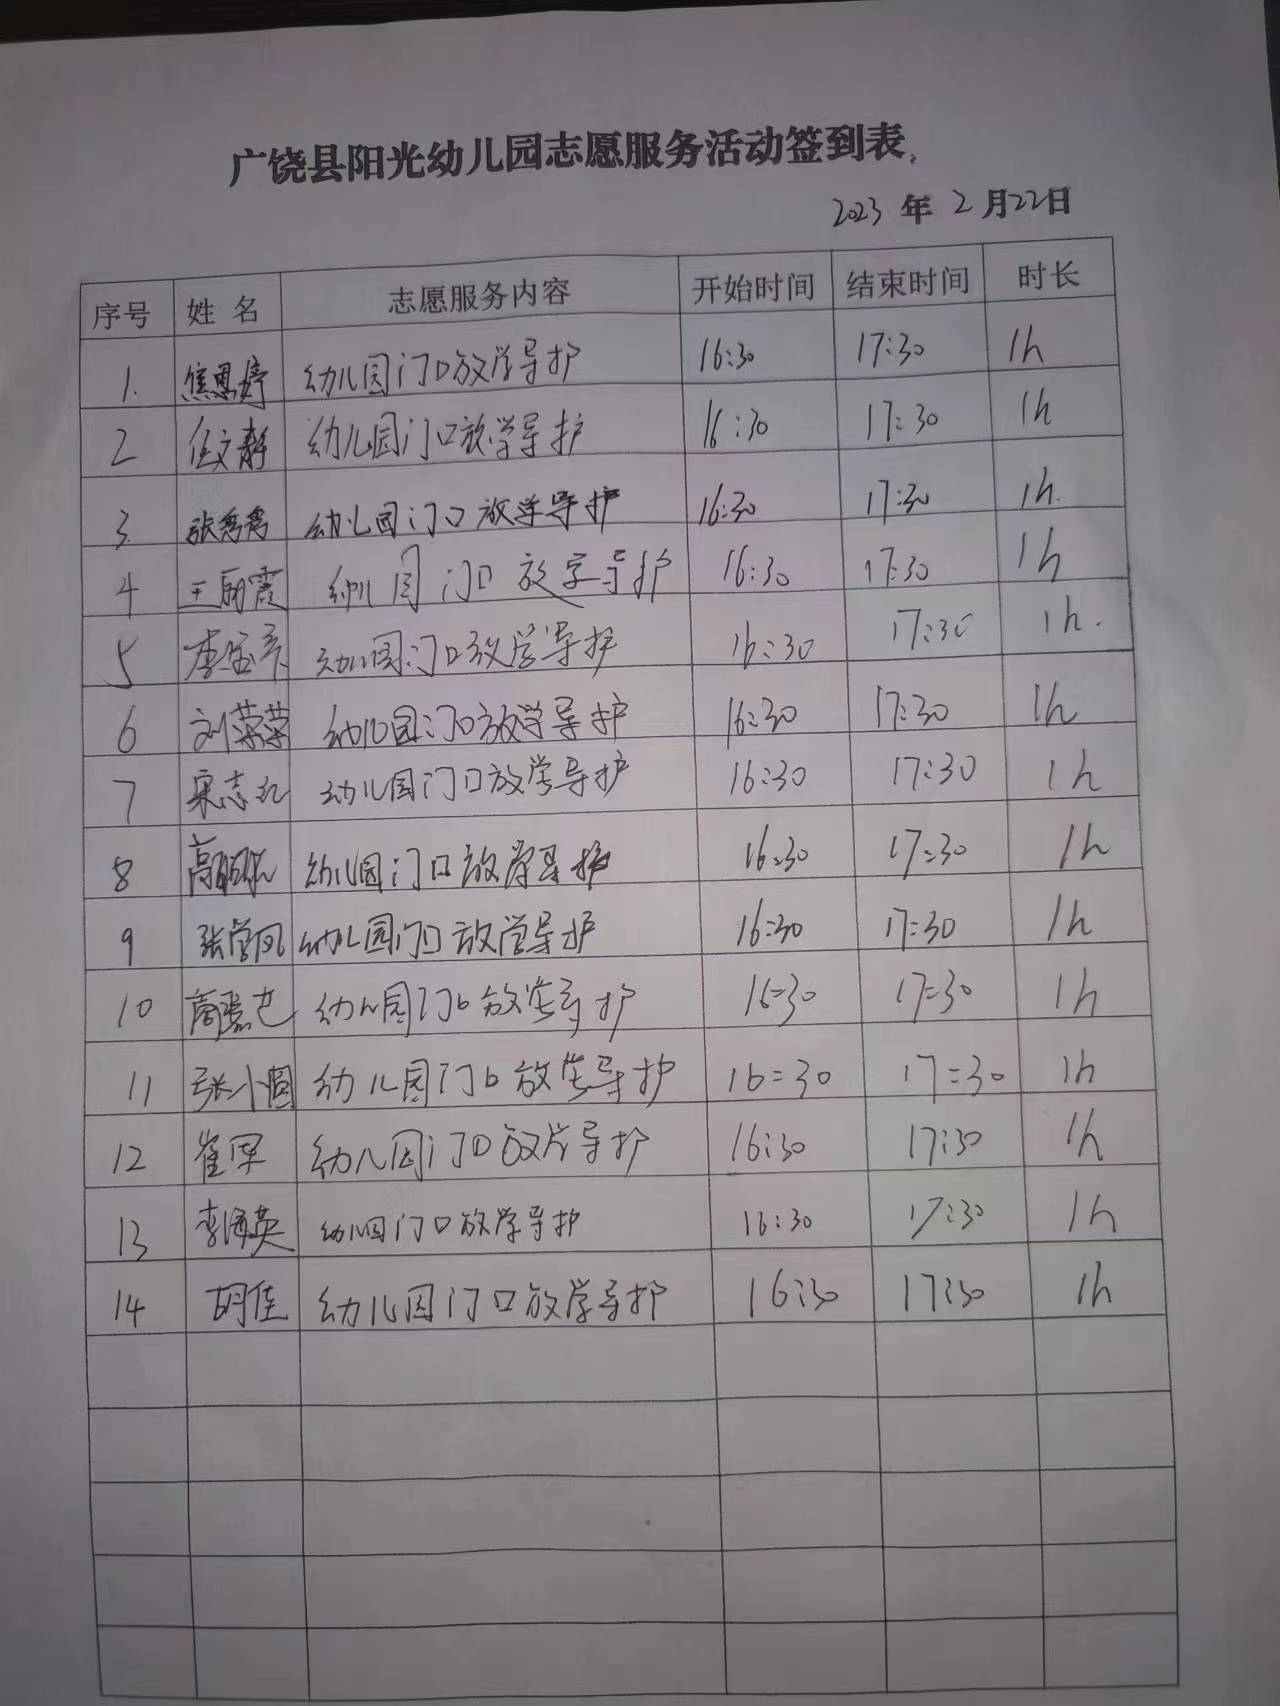 广饶县阳光幼儿园志愿服务活动签到表
2023 年 2 月22日
序号 姓 名 志愿服务内容 开始时间 结束时间 时长
1. 焦恩婷 幼儿园门口放学导护 16:30 17:30 1h
2 任文静 幼儿园门口放学导护 16:30 17:30 1h
3. 张秀秀 幼儿园门口放学导护 16:30 17:30 1h.
4 王丽霞 幼儿园门口放学导护 16:30 17:30 1h
5 幼儿园门口放学导护 16:30 17:30 1h.
6 刘荣荣 幼儿园门口放学导护 16:30 17:30 1h
7 宋志红 幼儿园门口放学导护 16:30 17:30 1h
8 幼儿园门口放学导护 16:30 17:30 1h
9 张学凤 幼儿园门口放学导护 16:30 17:30 1h
10 幼儿园门口放学导护 16:30 17:30 1h
11 张小圆 幼儿园门口放学导护 16:30 17:30 1h
12 幼儿园门口放学导护 16:30 17:30 1h
13 李海英 幼儿园门口放学导护 16:30 17:30 1h
14 胡佳 幼儿园门口放学导护 16:30 17:30 1h